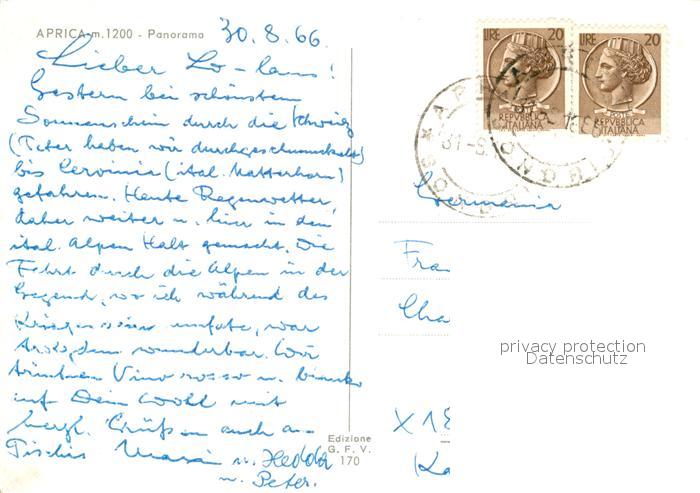 APRICA m.1200 - Panorama
30.8.66
Lieber Lo-laus!
Gestern bei schönstem
Sonnenschein durch die Schweiz
(Peter haben wir durchgeschmuckelt)
bis Cervinia (ital. Matterhorn)
gefahren. Heute Regenwetter
daher weiter u. hier in den
ital. Alpen Halt gemacht. Die
Fahrt durch die Alpen in der
Gegend, wo ich während des
Krieges war
trotzdem wunderbar. Wir
trinken Vino rosso u. bianko
auf Dein Wohl mit
herzl. Grüßen auch an
u. Hedda
u. Peter.
Edizione
G. F. V.
170
LIRE 20
REPVBBLICA
ITALIANA
LIRE 20
REPVBBLICA
ITALIANA
Germania
Fra
Cha
X 18
Ka
privacy protection
Datenschutz